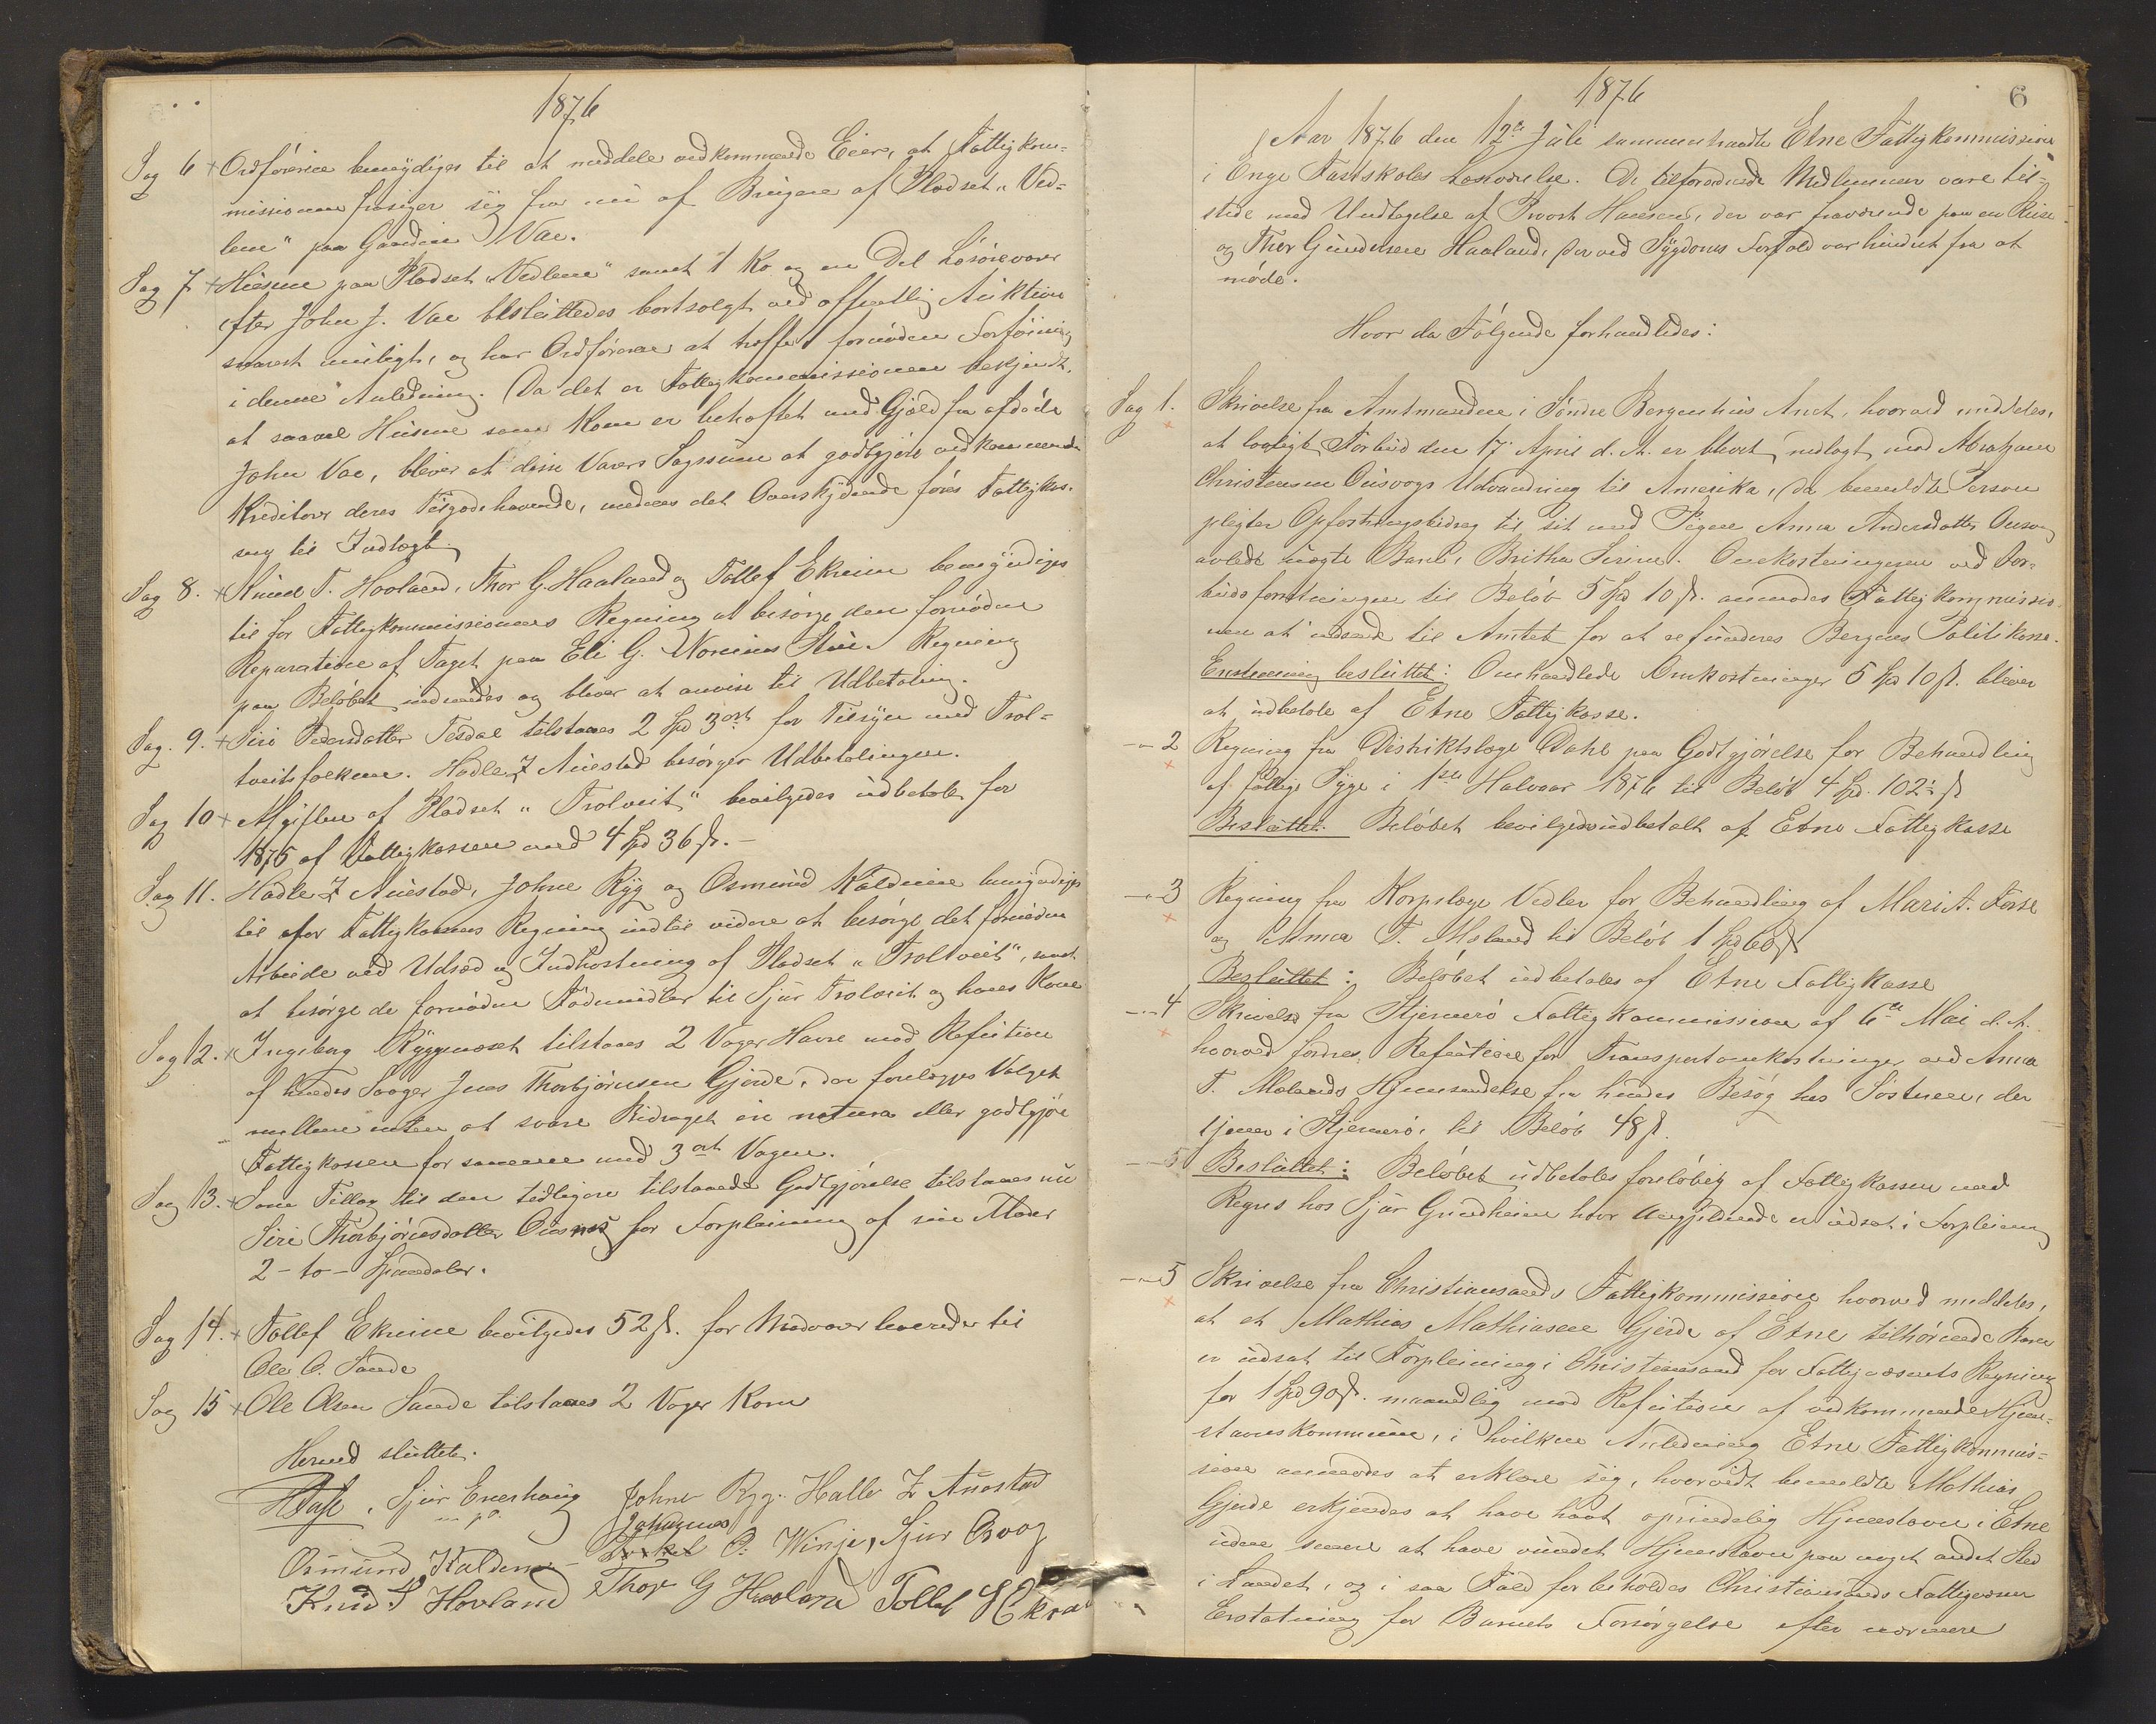 1876
Sag 6 + Ordføreren bemyndiges til at meddele vedkommende Eier, at Fattigkom-
missionen frasiger sig fra nu af Brugen af Pladset "Ved-
lene" paa Gaarden Vae.
Sag 7 + Husene paa Pladset "Vedlene" samt 1 Ko og en Del Løsørevarer
efter John J. Vae besluttedes bortsolgt ved offentlig Auktion
snarest muligt, og har Ordføreren at træffe fornøden Forføining
i denne Anledning. Da det er Fattigkommissionen bekjendt,
at saavel Husene som Koen er beheftet med Gjæld fra afdøde
John Vae, bliver af disse Varers Sagssum at godtgjøre vedkommende
Kreditorer deres Tilgodehavende, medens det Overskydende føres Fattigkas-
sen til Indtægt.
Sag 8. + Knud T. Hovland, Thor G. Haaland og Tollef Ekreim bemyndiges
til for Fattigkommissionens Regning at besørge den fornødne
Reparation af Taget paa Eli G. Stue. Regning
paa Beløbet indsendes og bliver at anvise til Udbetaling.
Sag. 9. + Siri Pedersdatter Tesdal tilstaaes 2 Spd 3 ort for Tilsyn med Trol-
tveitsfolkene. Hadle Z Auestad besørger Udbetalingen.
Sag 10 + Afgiften af Pladset "Troltveit" bevilgedes udbetalt for
1875 af Fattigkassen med 4 Spd 36 ß. -
Sag 11. Hadle Z Auestad, Johne Ryg og Osmund Kaldeim bemyndiges
til for Fattigkassens Regning indtil videre at besørge det fornødne
Arbeide ved Udsæd og Indhøstning af Pladset "Troltveit", samt
at besørge de fornødne Fødemidler til Sjur Troltveit og hans Kone
Sag 12. + Ingeborg Ryggenæset tilstaaes 2 Vager Havre mod Refution
af hendes Svoger Jens Thorbjørnsen Gjerde, der forelægges Valget
mellem enten at svare Bidraget in natura eller godtgjøre
Fattigkassen for samme med 3 ort Vagen.
Sag 13. + Som Tillæg til den tidligere tilstaaede Godtgjørelse tilstaaes nu
Siri Thorbjørnsdatter for Forpleining af sin Moder
2 - to - Speciedaler.
Sag 14. + Tollef Ekreim bevilgedes 52 ß. for Madvarer leverede til
Ole O. Sande
Sag 15 + Ole Olsen Sande tilstaaes 2 Vager Korn
Hermed sluttet.
HDahl. Sjur Enershaug Johne Ryg. Halle Z Auestad
m. p. P.
Johannes
Osmund Kaldem - Torkel O. Winje, Sjur Osvog
Knud T Hovland Thor G Haaland Tollef Ekra
1876
6
Aar 1876 den 12te Juli sammentraadte Etne Fattigkommission
i Enge Fastskoles Lokale. De tilforordnede Medlemmer vare til-
stede med Undtagelse af Provst Hansen, der var fraværende paa en Reise
og Thor Gundersen Haaland, der ved Sygdoms Forfald var hindret fra at
møde.
Hvor da Følgende forhandledes:
Sag 1. Skrivelse fra Amtmanden i Søndre Bergenhus Amt, hvorved meddeles,
at lovligt Forbud den 17 April d. A. er blevet nedlagt mod Abraham
Christensen Ousvogs Udvandring til Amerika, da bemeldte Person
pligter Opfostringsbidrag til sit med Pigen Anna Andersdatter
avlede uægte Barn, Britha Serine. Omkostningerne ved For-
budsforretningen til Beløb 5 Spd 10 ß. anmodes Fattigkommissio-
nen at indsende til Amtet for at refunderes Bergens Politikasse.
Enstemmig besluttet: Omhandlede Omkostninger 5 Spd 10 ß. bliver
at udbetale af Etne Fattigkasse.
- " - 2 Regning fra Distriktslæge Dahl paa Godtgjørelse for Behandling
af fattige Syge i 1ste Halvaar 1876 til Beløb 4 Spd. 102 ß
Besluttet. Beløbet bevilges udbetalt af Etne Fattigkasse
- " - 3 Regning fra Korpslæge Vedler for Behandling af Mari A. Fosse
og Anna T. Mæland til Beløb 1 Spd 60 ß
Besluttet: Beløbet udbetales af Etne Fattigkasse
- " - 4 Skrivelse fra Stjernerø Fattigkommission af 6te Mai d. A.
hvorved fordres Refution for Transportomkostninger ved Anna
T. Mælands Hjemsendelse fra hendes Besøg hos Søsteren, der
tjener i Stjernerø, til Beløb 48 ß.
- " - 5 Besluttet: Beløbet udbetales foreløbig af Fattigkassen mod
Regres hos Sjur Grindheim hvor Angjældende er udsat i Forpleining
- " - 5 Skrivelse fra Christiansands Fattigkommission hvorved meddeles,
at et Mathias Mathiasen Gjerde af Etne tilhørende Barn
er udsat til Forpleining i Christiansand for Fattigvæsenets Regning
for 1 Spd 90 ß. maanedlig mod Refution af vedkommende Hjem-
stavnskommune, i hvilken Anledning Etne Fattigkommis-
sion anmodes at erklære sig, hvorvidt bemeldte Mathias
Gjerde erkjendes at have havt oprindelig Hjemstavn i Etne
uden senere at have vundet Hjemstavn paa noget andet Sted
i Landet, og i saa Fald forbeholdes Christiansands Fattigvæsen
Erstatning for Barnets Forsørgelse efter nærmere